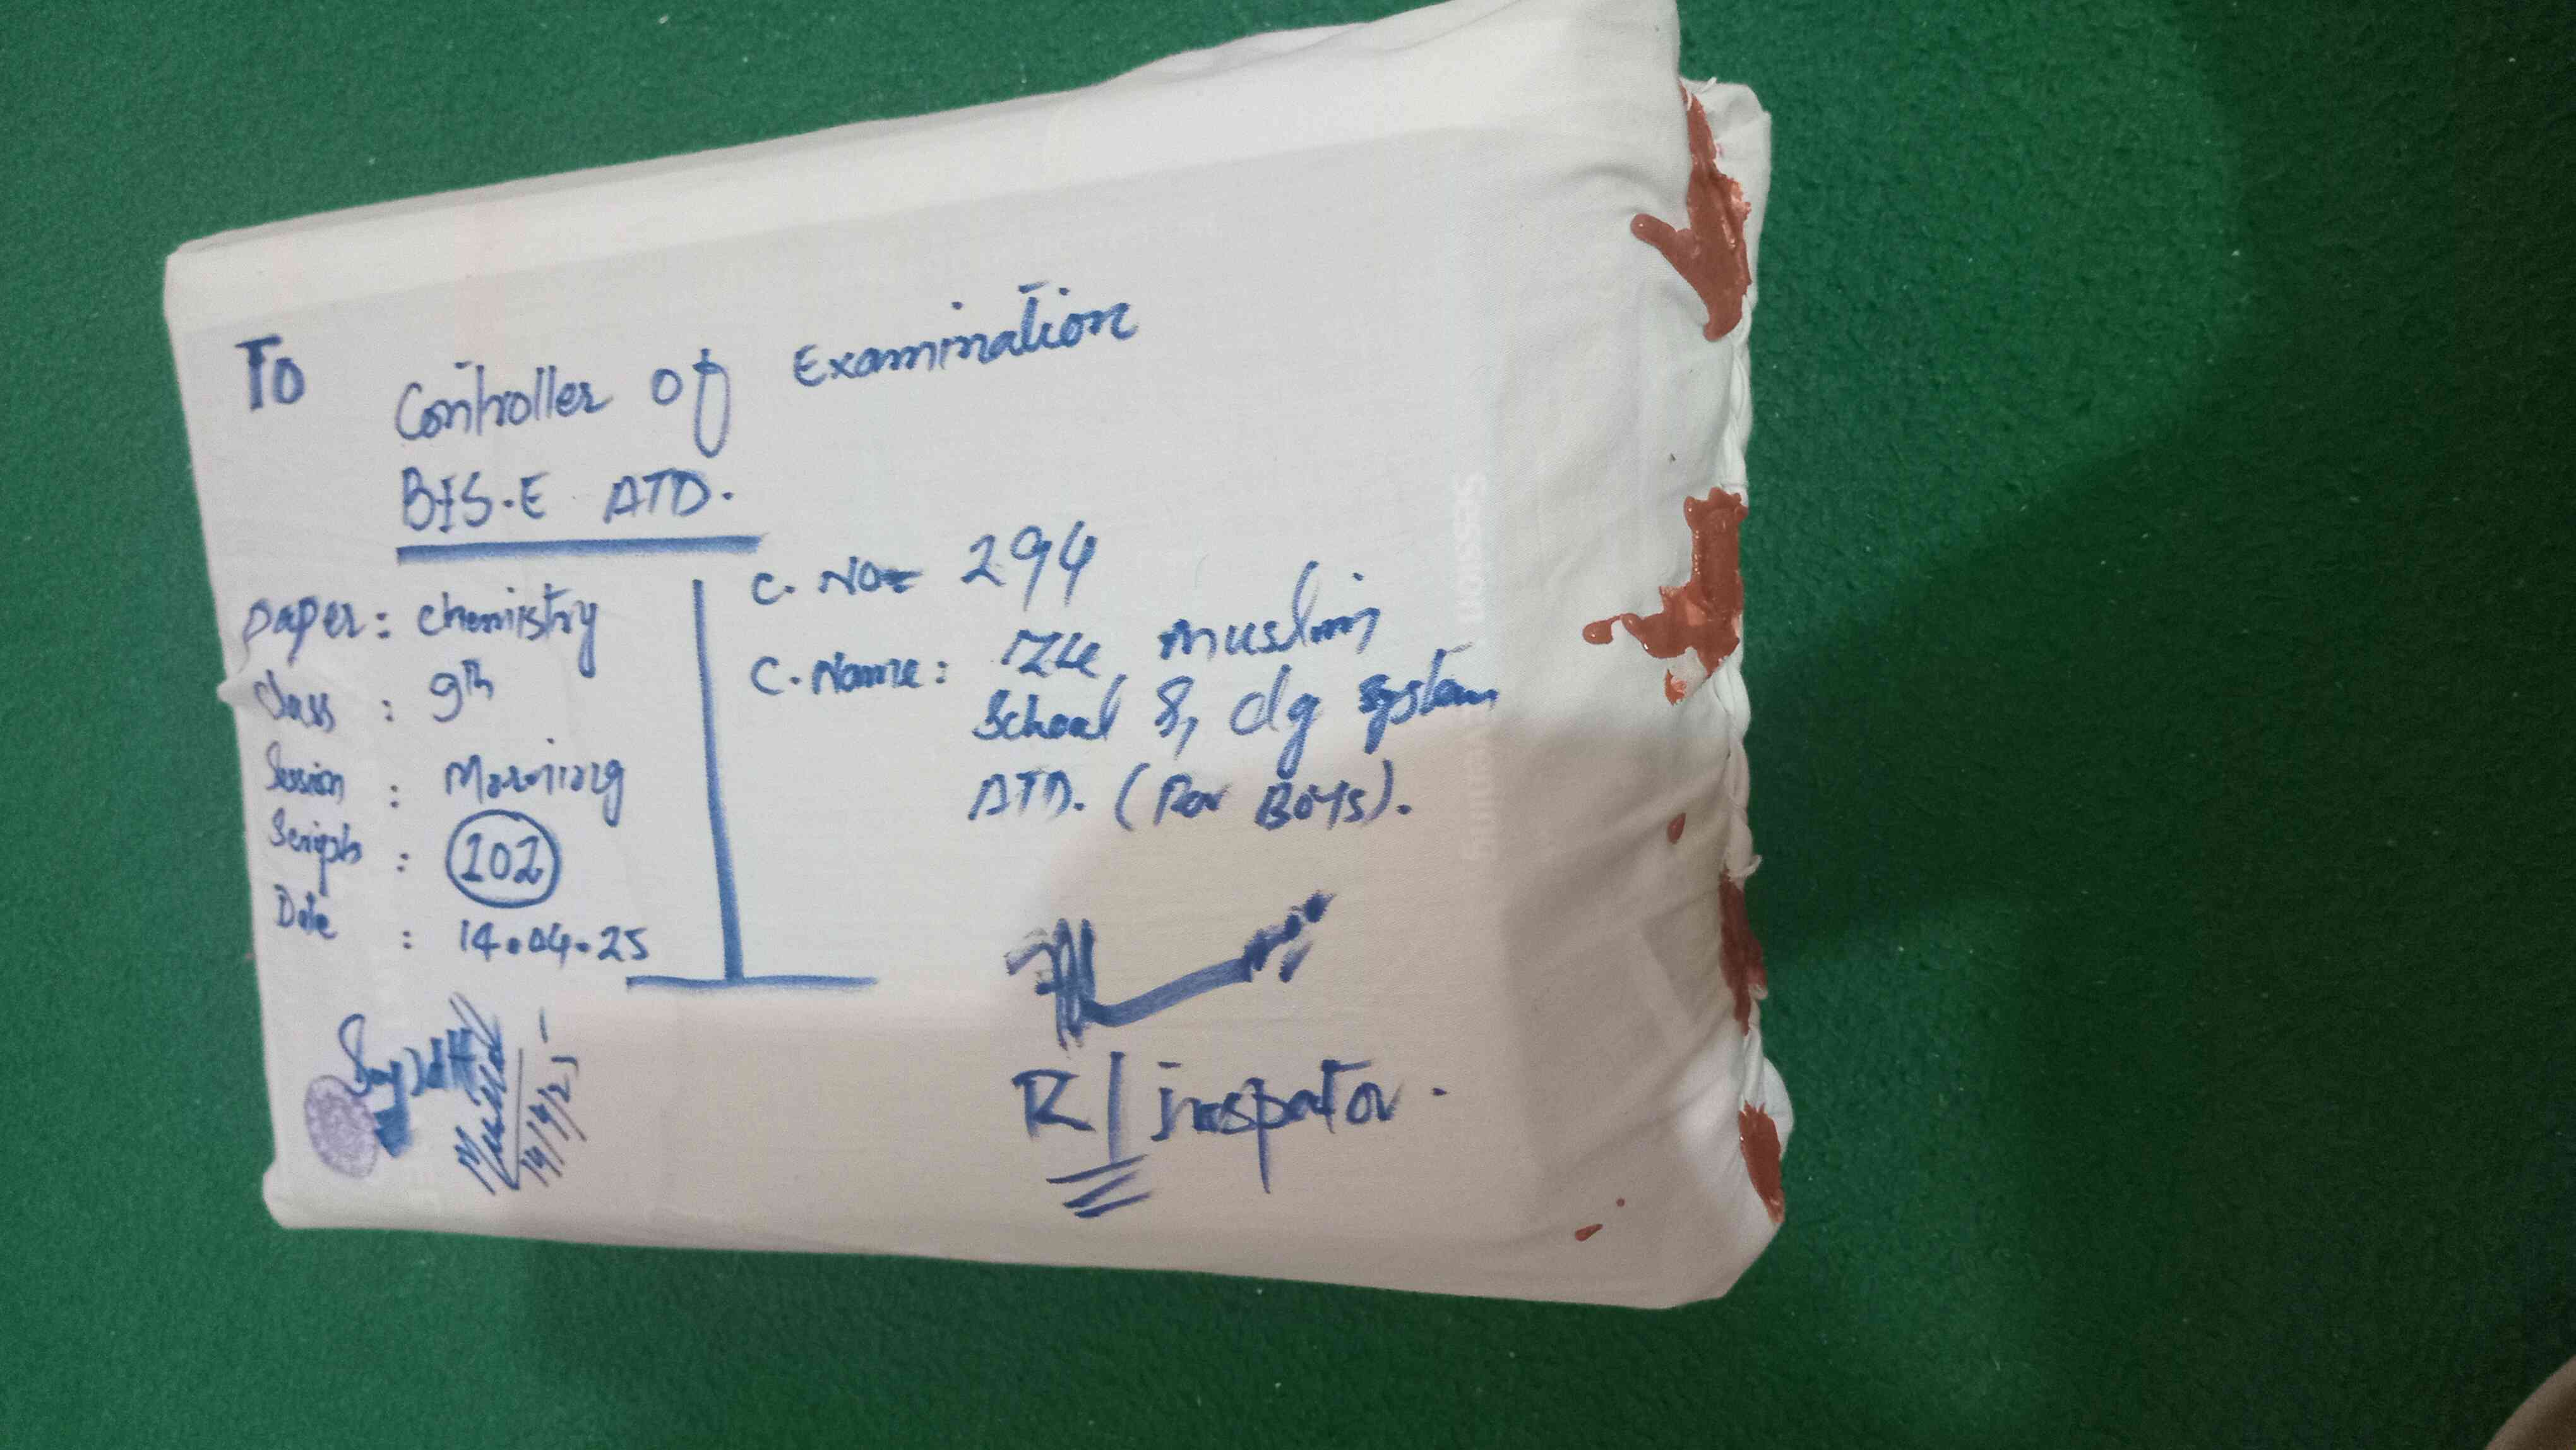 To
Controller of Examination
B.I.S.E ATD.
paper: chemistry
Class : 9th
Session : Morning
Scripts : 102
Date : 14.04.25
C. No= 294
C. Name: The muslim
School & clg system
ATD. (For Boys).
14/4/25
R/inspator.